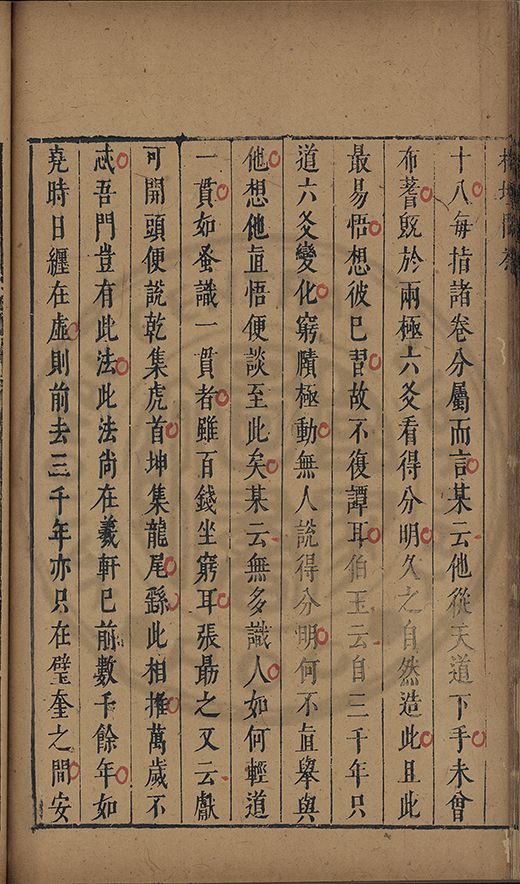 十八每指諸卷分屬而言某云他從天道下手未曾
布蓍旣於兩極六爻看得分明久之自然造此且此
最易悟想彼已習故不復譚耳伯玉云自三千年只
道六爻變化窮賾極動無人說得分明何不直舉與
他想他直悟便談至此矣某云無多識人如何輕道
一貫如蚤識一貫者雖百錢坐窮耳張勗之又云獻
可開頭便說乾集虎首坤集龍尾繇此相推萬歲不
忒吾門豈有此法此法尚在羲軒已前數千餘年如
堯時日纏在虛則前去三千年亦只在璧奎之間安